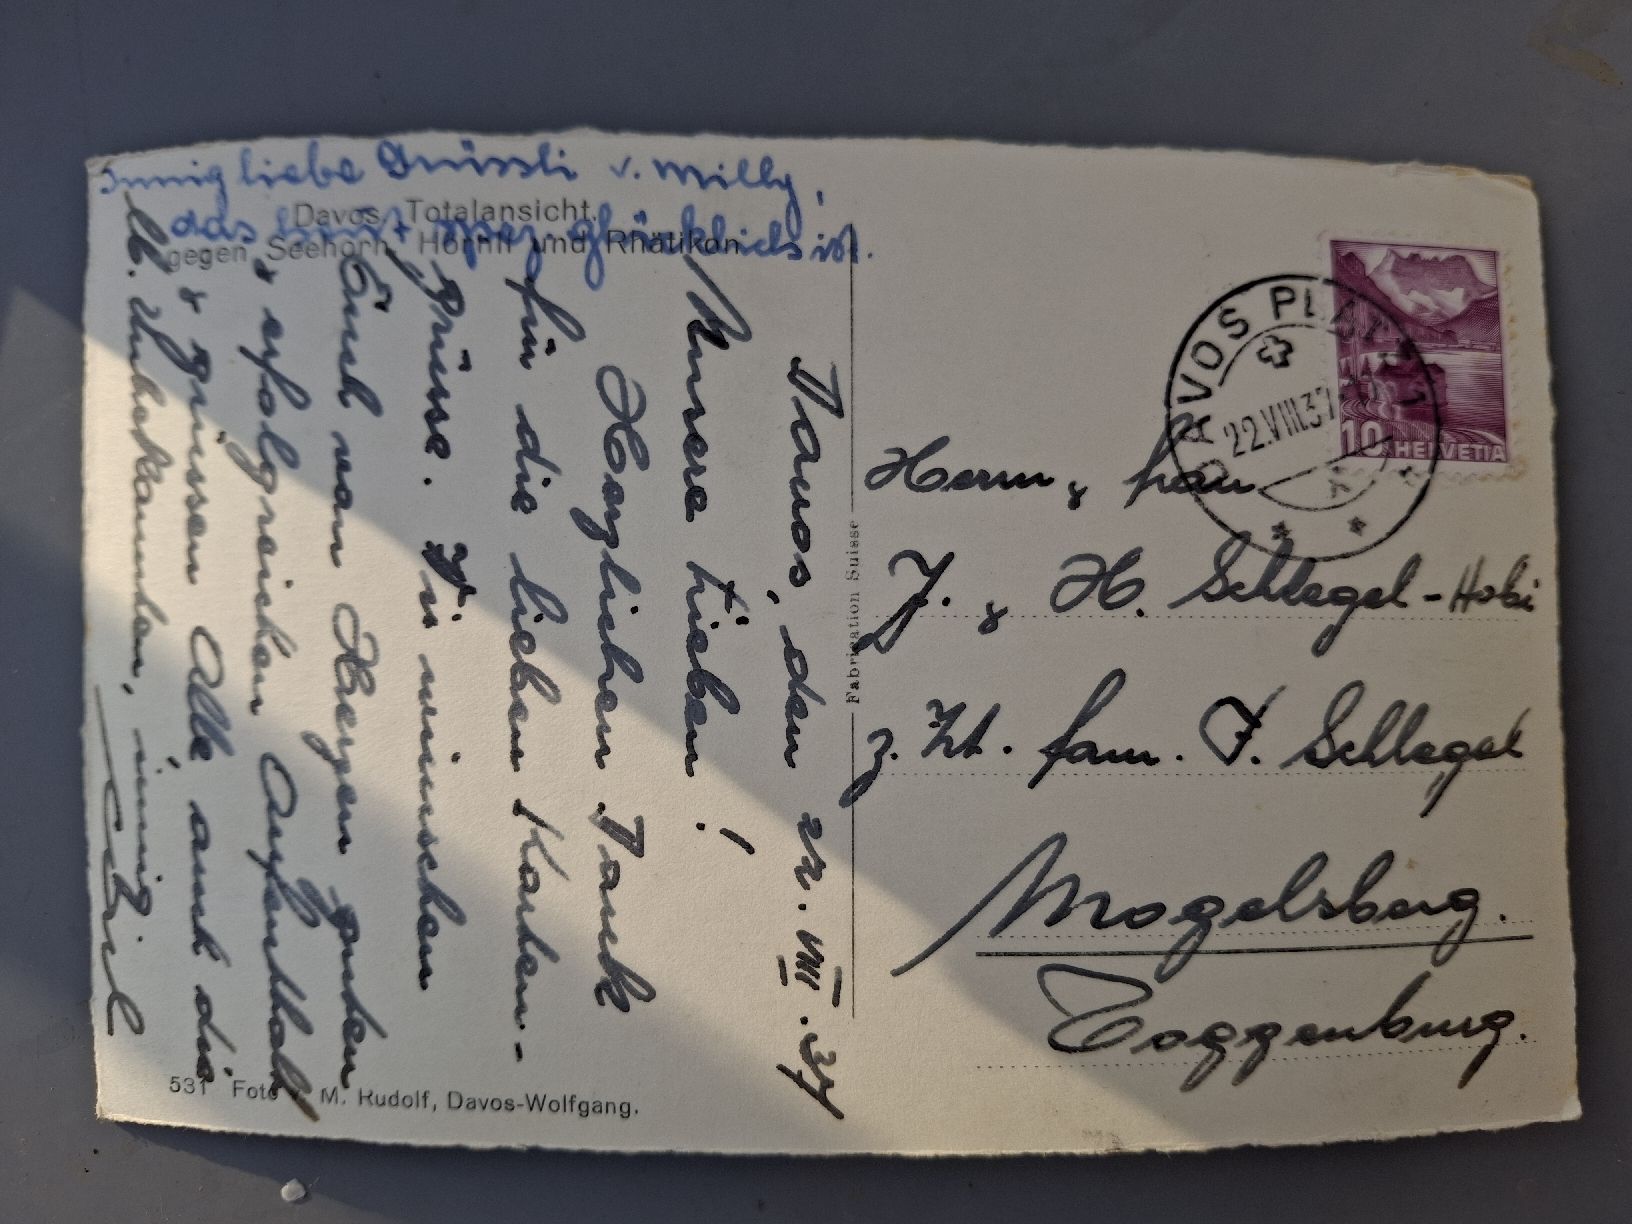 Innig liebe Grüssli v. Milly,
das glücklich ist.
Davos, Totalansicht.
gegen Seehorn, Hörnli und Rhätikon
Davos, den 22. VIII. 37
Unsere Lieben!
Herzlichen Dank
für die lieben Karten-
grüsse. Wir wünschen
Euch von Herzen guten
& erfolgreichen Aufenthalt
& grüssen Alle auch die
lb. Unbekannten, innig
Fabrication Suisse
DAVOS PLATZ 1
22.VIII.37
10 HELVETIA
Herrn & Frau
J. & H. Schlegel-Hobi
z. Zt. Fam. J. Schlegel
Mogelsberg.
Toggenburg.
531 Foto M. Rudolf, Davos-Wolfgang.